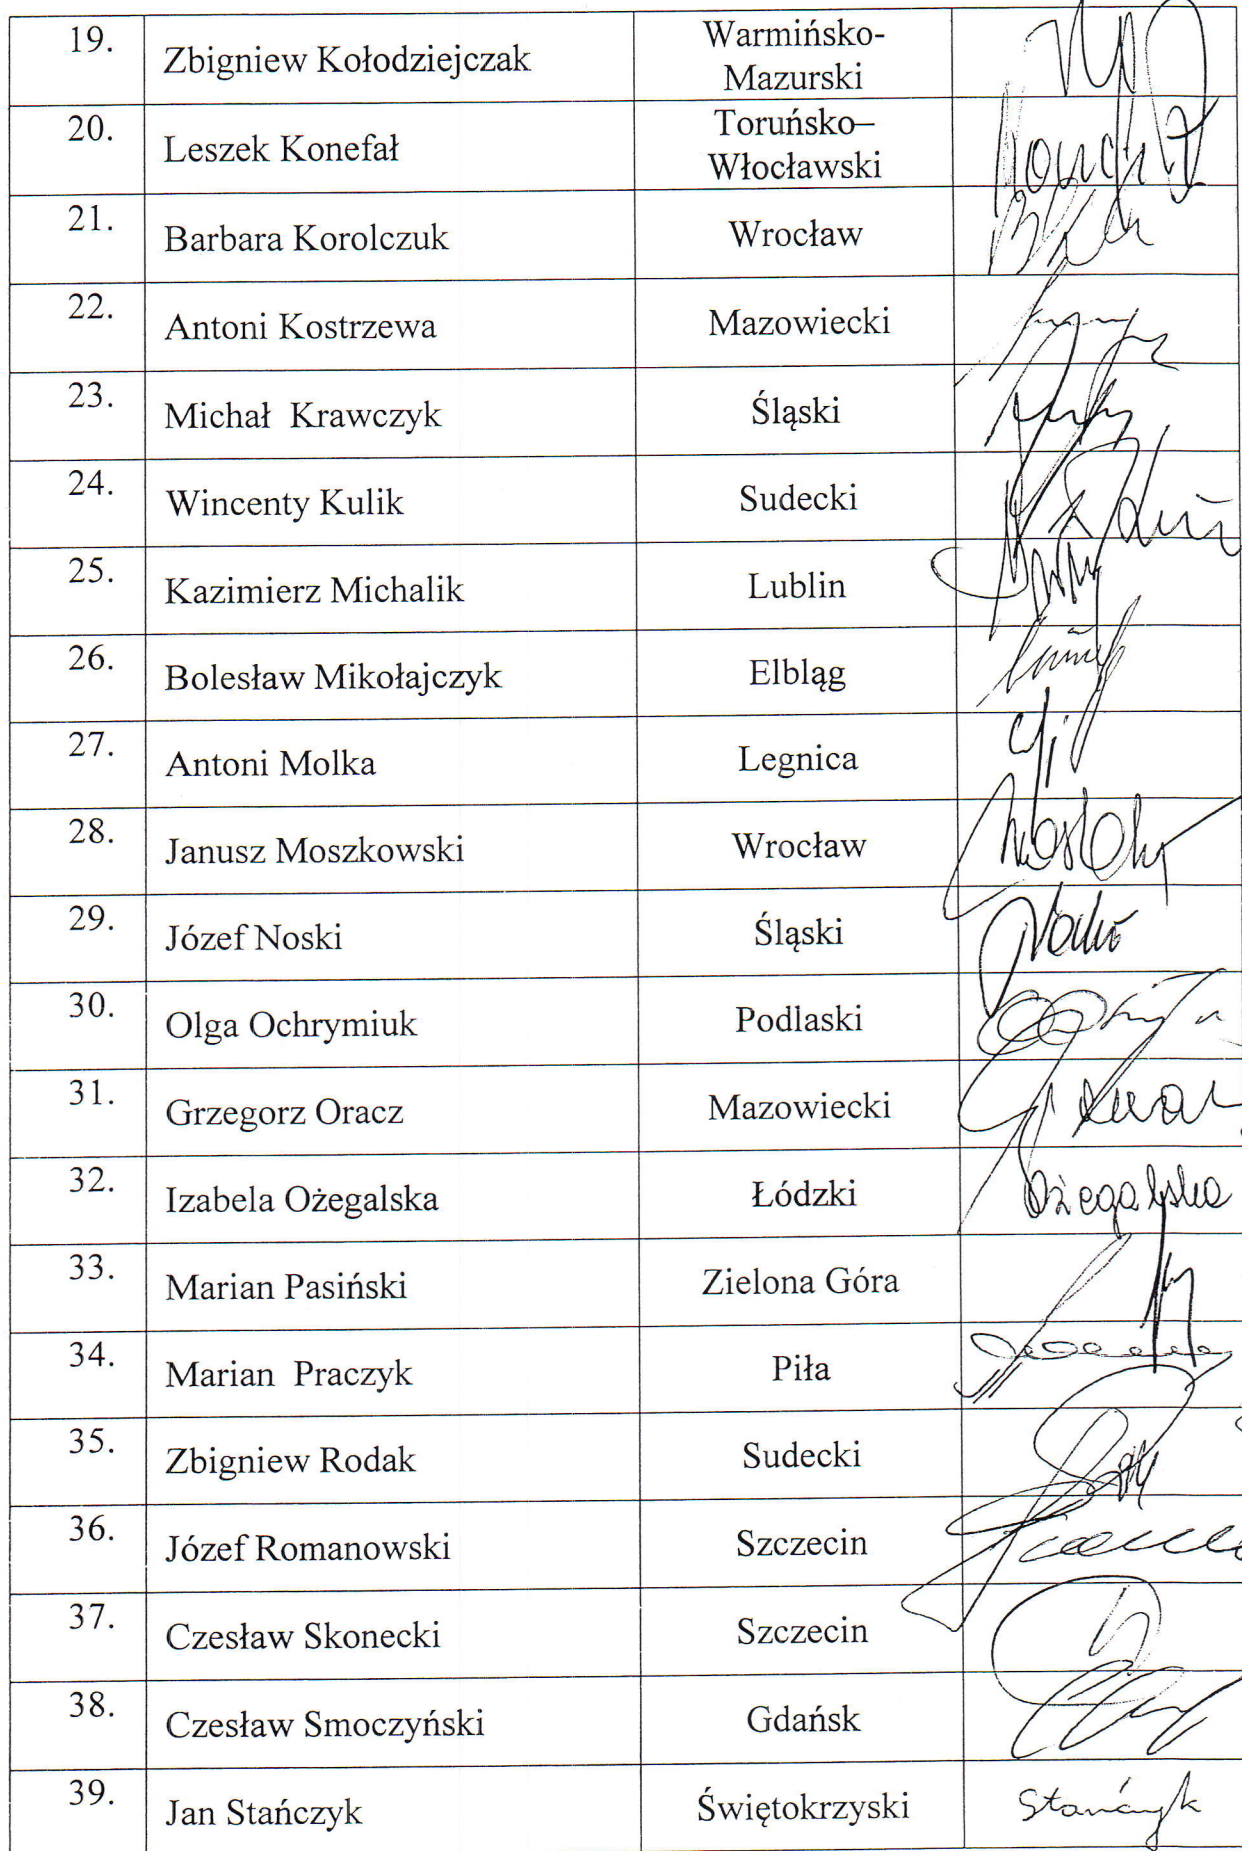 19.
Zbigniew Kołodziejczak
Warmińsko-
Mazurski
20.
Leszek Konefał
Toruńsko–
Włocławski
21.
Barbara Korolczuk
Wrocław
22.
Antoni Kostrzewa
Mazowiecki
23.
Michał Krawczyk
Śląski
24.
Wincenty Kulik
Sudecki
25.
Kazimierz Michalik
Lublin
26.
Bolesław Mikołajczyk
Elbląg
27.
Antoni Molka
Legnica
28.
Janusz Moszkowski
Wrocław
29.
Józef Noski
Śląski
30.
Olga Ochrymiuk
Podlaski
31.
Grzegorz Oracz
Mazowiecki
32.
Izabela Ożegalska
Łódzki
Ożegalska
33.
Marian Pasiński
Zielona Góra
34.
Marian Praczyk
Piła
35.
Zbigniew Rodak
Sudecki
36.
Józef Romanowski
Szczecin
37.
Czesław Skonecki
Szczecin
38.
Czesław Smoczyński
Gdańsk
39.
Jan Stańczyk
Świętokrzyski
Stańczyk